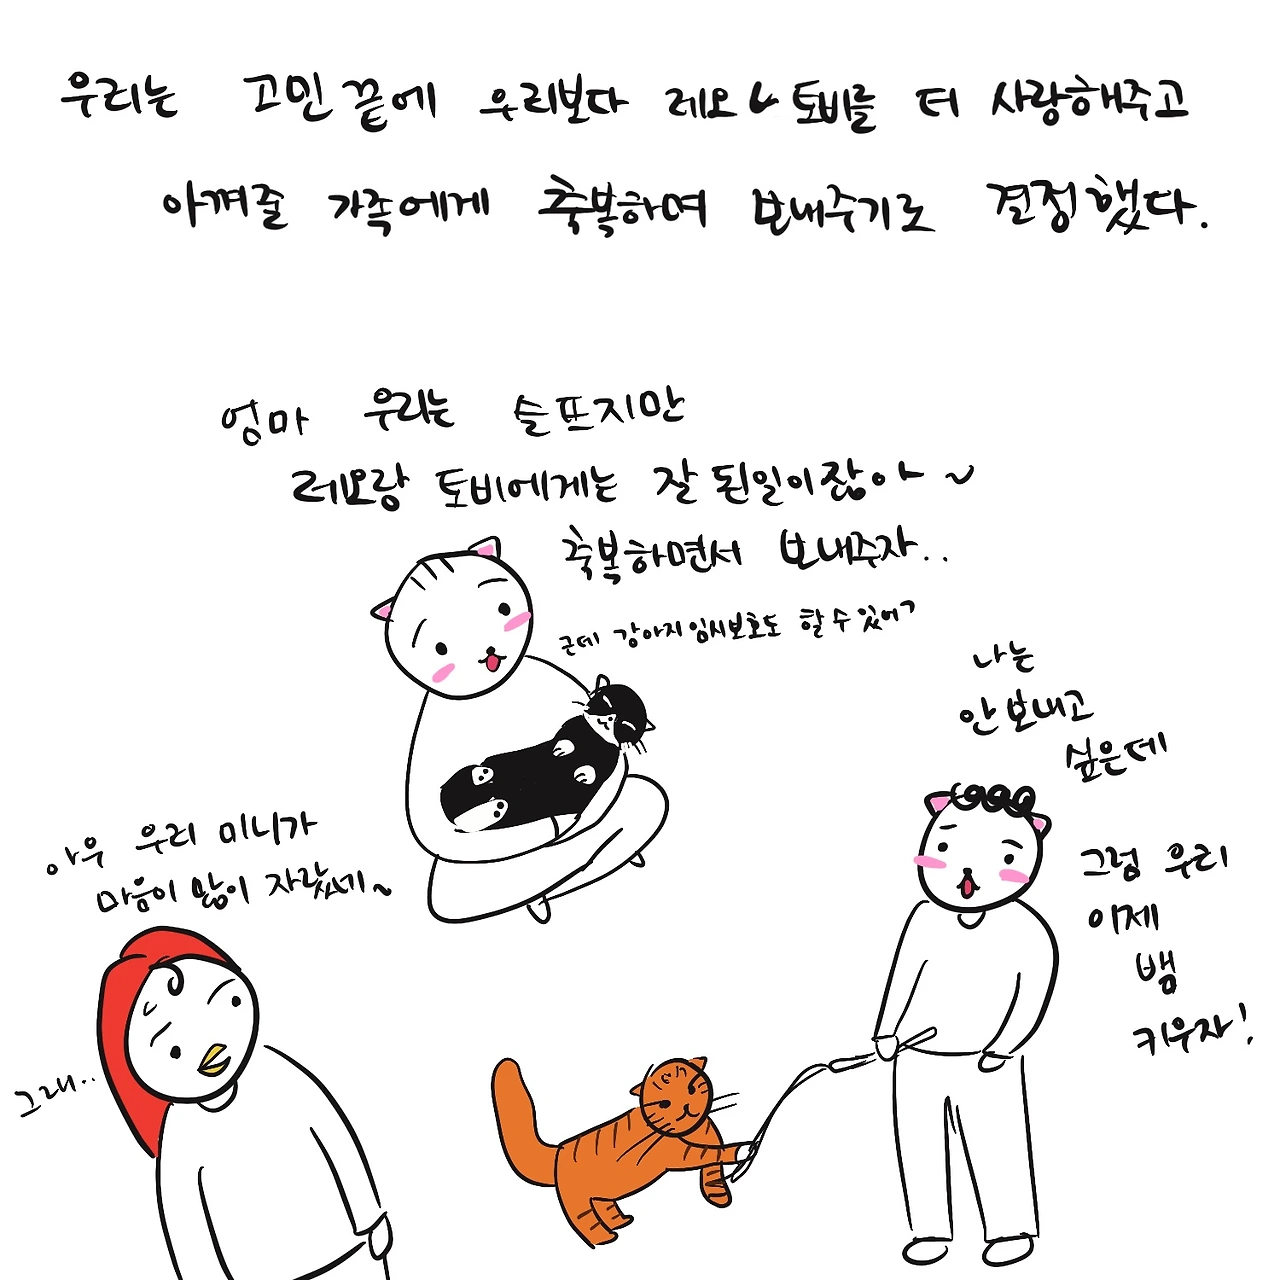 우리는 고민 끝에 우리보다 레오나 토비를 더 사랑해주고
아껴줄 가족에게 축복하며 보내주기로 결정했다.
엄마 우리는 슬프지만
레오랑 토비에게는 잘 된일이잖아~
축복하면서 보내주자..
근데 강아지 임시보호도 할 수 있어?
나는
안 보내고
싶은데
그럼 우리
이제
뱀
키우자!
아우 우리 미니가
마음이 많이 자랐네~
그래..